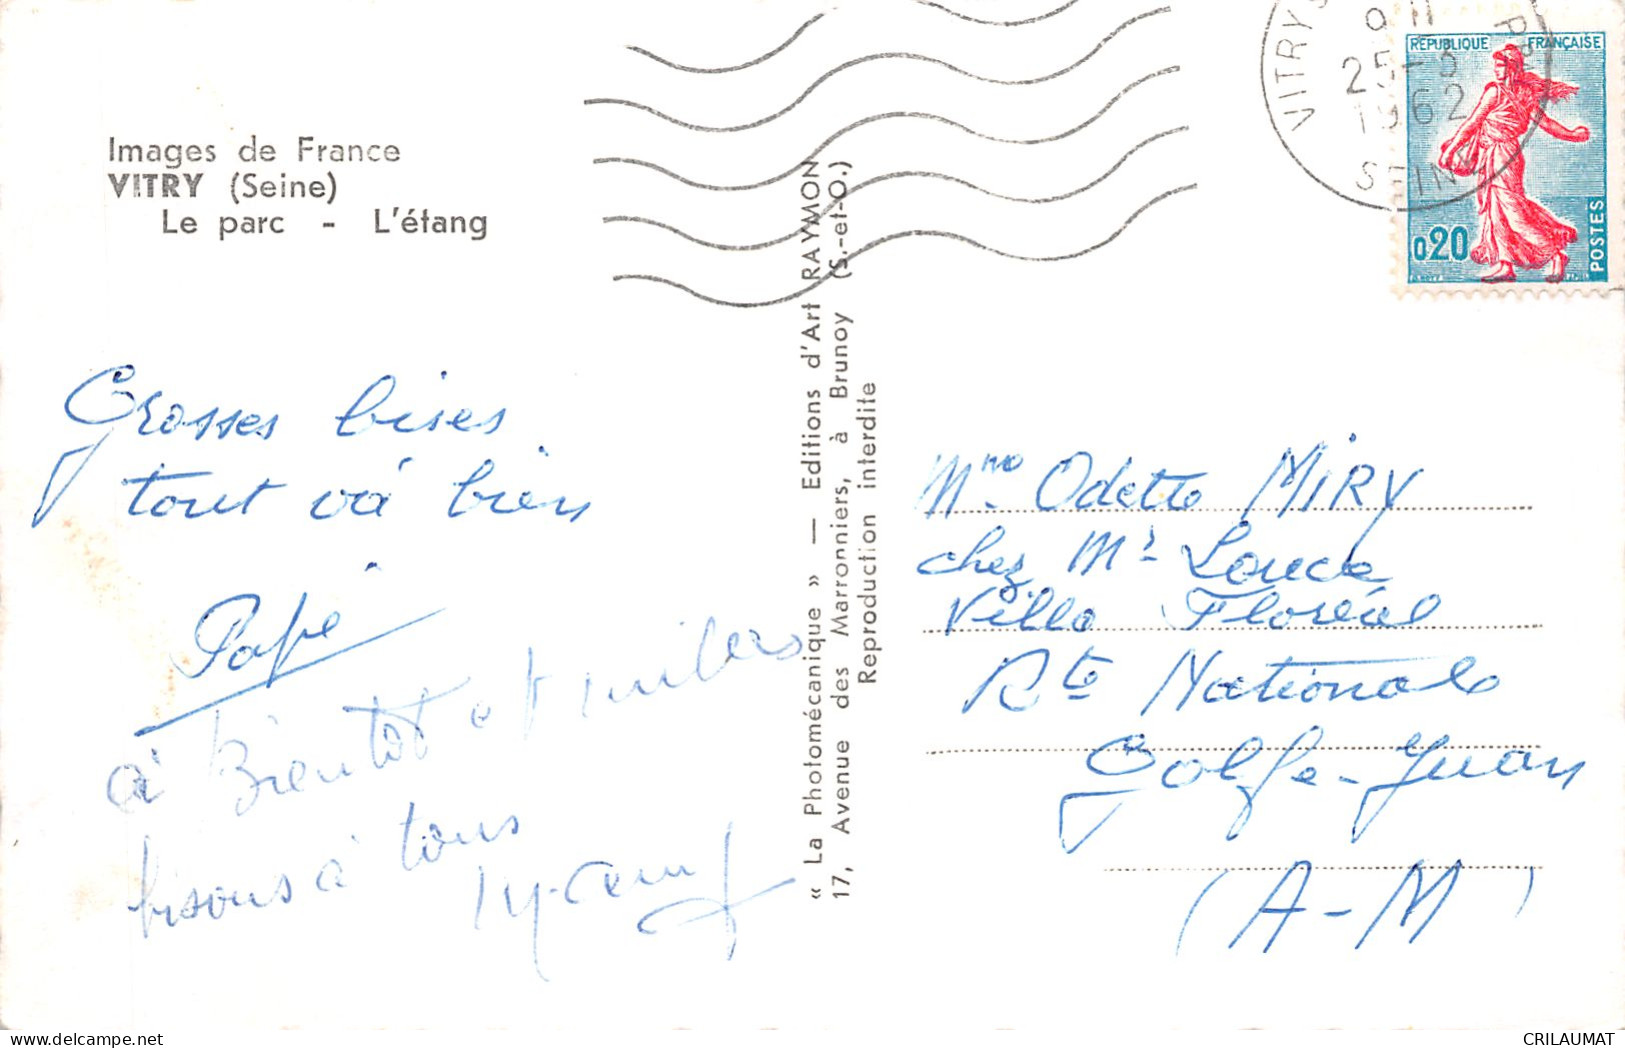 Images de France
VITRY (Seine)
Le parc - L'étang
Grosses bises
tout và bien
Papé
à Bientôt et milles
bisous à tous
« La Photomécanique » — Editions d'Art RAYMON
17, Avenue des Marronniers, à Brunoy (S.-et-O.)
Reproduction interdite
VITRY S
25-3
1962
SEINE
REPUBLIQUE FRANÇAISE
0,20
POSTES
Mme Odette MIRY
chez Mr Loucle
Villa Floréal
Rte Nationale
Golfe-Juan
(A-M)
CRILAUMAT